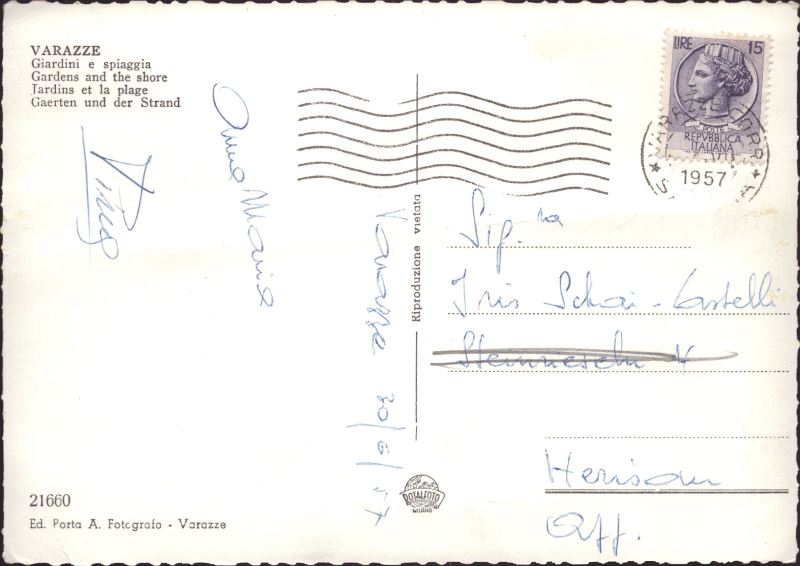 VARAZZE
Giardini e spiaggia
Gardens and the shore
Jardins et la plage
Gaerten und der Strand
Anna Maria
Varazze 30/6/57
Riproduzione vietata
LIRE 15
POSTE
REPVBBLICA
ITALIANA
VARAZZE
1957
Sig.na
Iris Schai-Castelli
Herisau
App.
21660
Ed. Porta A. Fotografo - Varazze
ROTALFOTO
MILANO